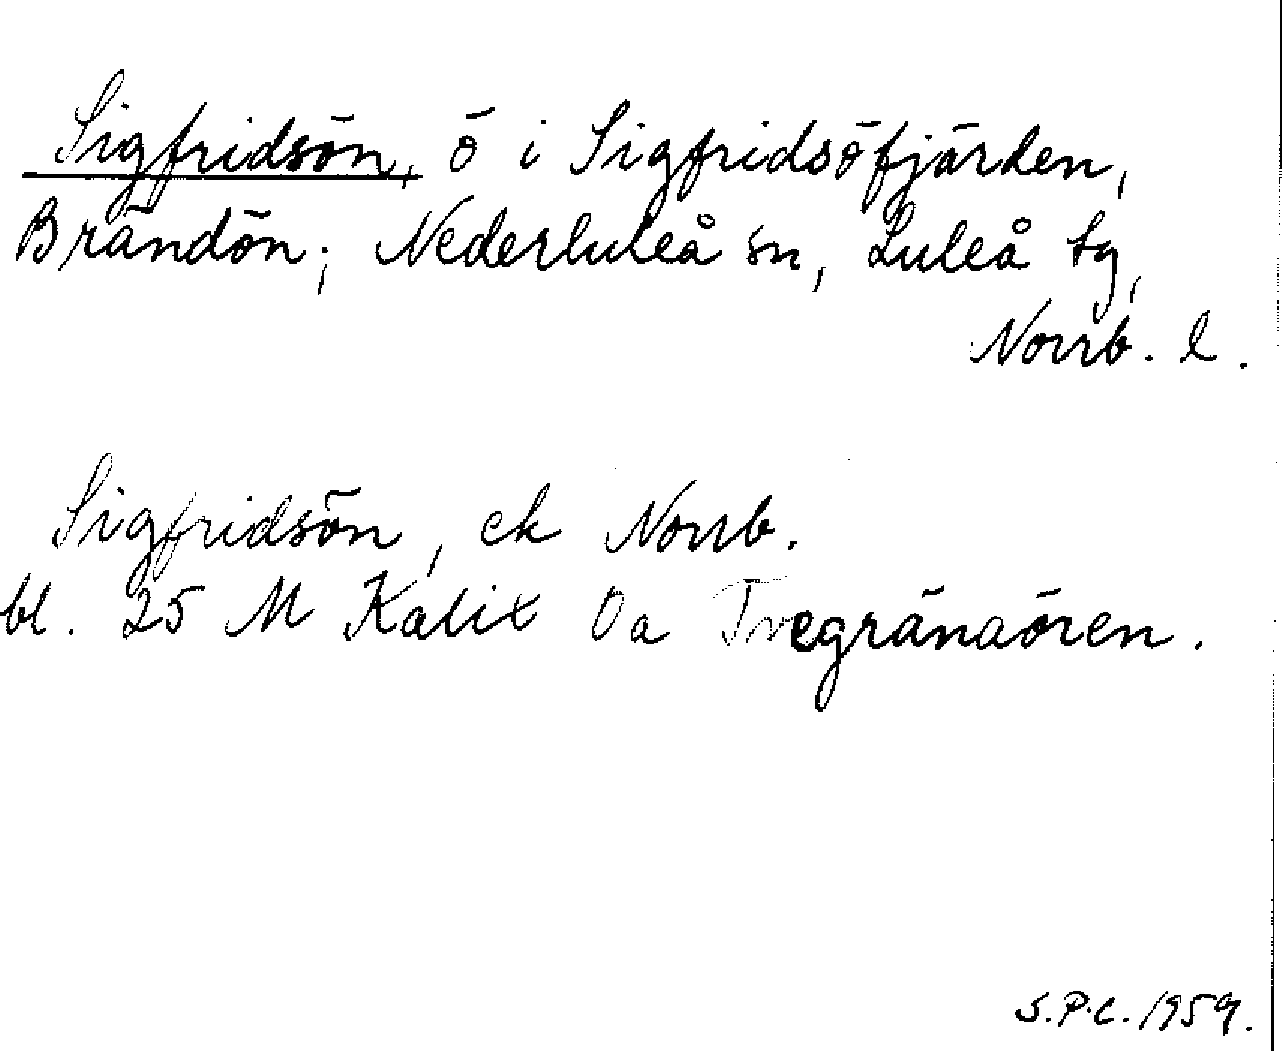 Sigfridsön, ö i Sigfridsöfjärden,
Brändön; Nederluleå sn, Luleå tg,
Norrb. l.
Sigfridsön, ek Norrb.
bl. 25 M Kalix Oa Tvegränaören.
S.P.C. 1959.